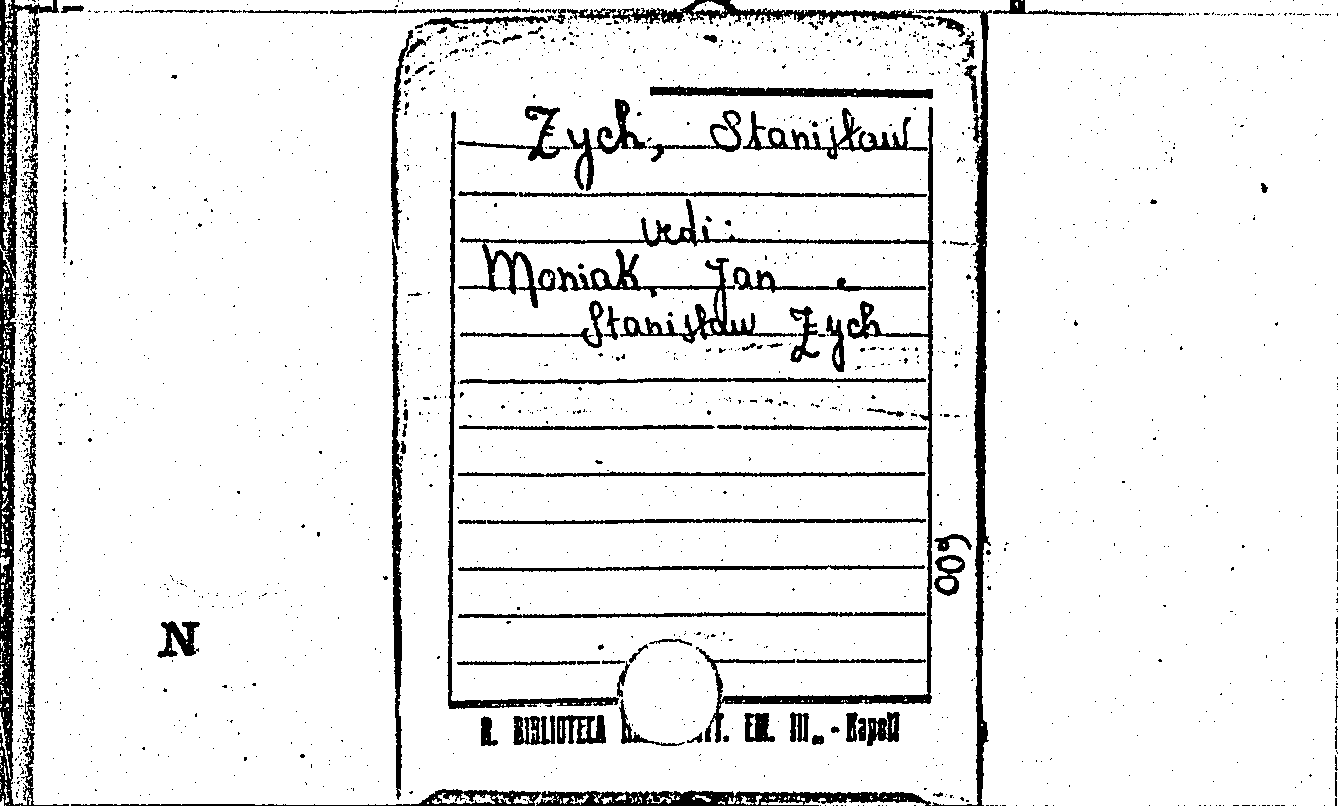 Zych, Stanisław
vedi:
Moniak, Jan e
Stanisław Zych
009
N
R. BIBLIOTECA T. EM. III„ - Napoli